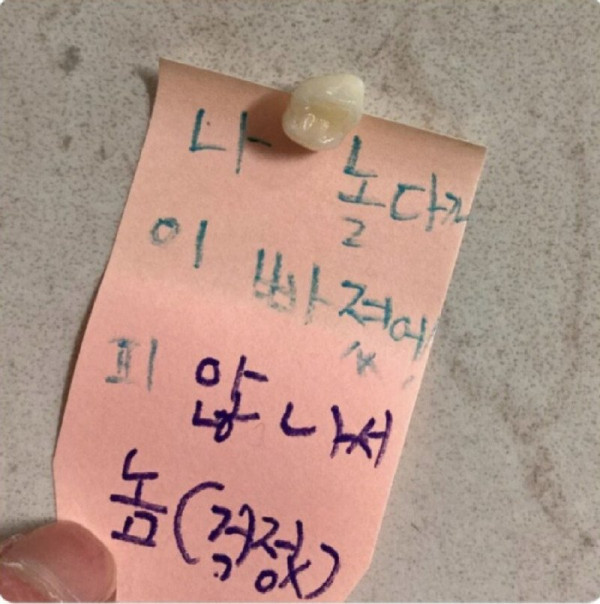 나 놀다가
이 빠졌어
피 않 나서
놈(걱정x)